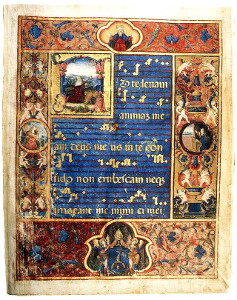 d te leuaui
animaz me
am deus me us in te con
fido non erubescam neqz
irrideant me inimi ci mei